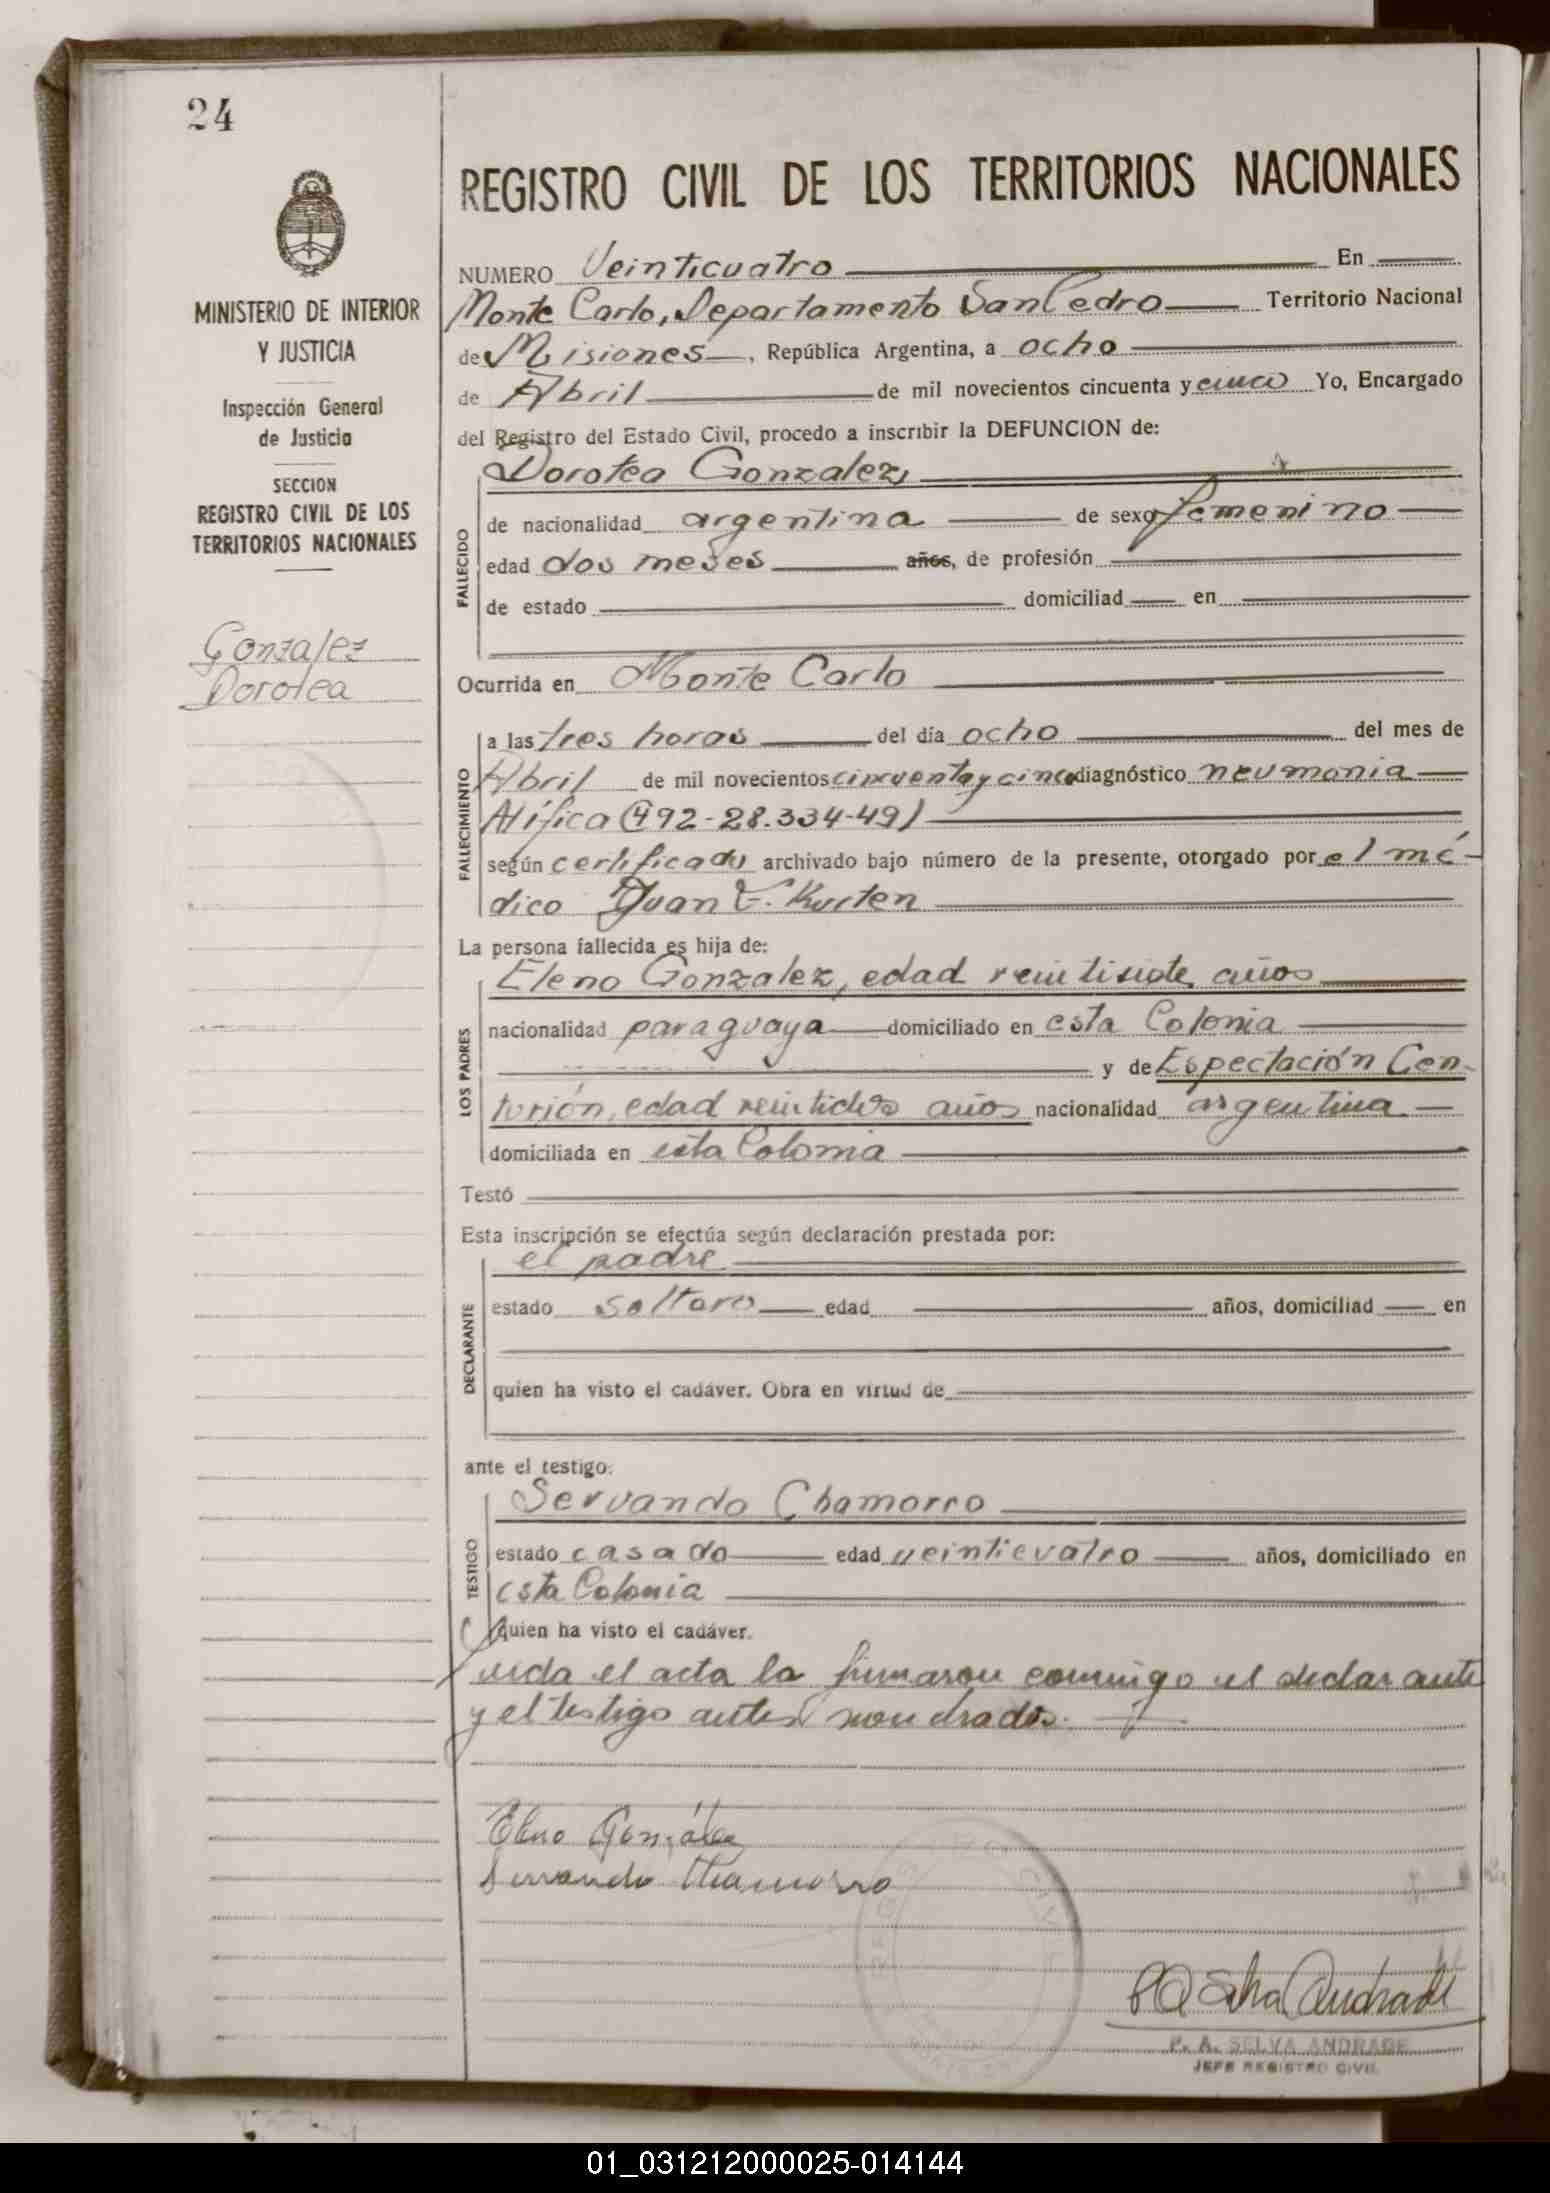 24
MINISTERIO DE INTERIOR
Y JUSTICIA
Inspección General
de Justicia
SECCION
REGISTRO CIVIL DE LOS
TERRITORIOS NACIONALES
Gonzalez
Dorotea
REGISTRO CIVIL DE LOS TERRITORIOS NACIONALES
NUMERO Veinticuatro En
Monte Carlo, Departamento San Pedro Territorio Nacional
de Misiones, República Argentina, a ocho
de Abril de mil novecientos cincuenta y cinco Yo, Encargado
del Registro del Estado Civil, procedo a inscribir la DEFUNCION de:
Dorotea Gonzalez,
FALLECIDO
de nacionalidad argentina de sexo femenino
edad dos meses años, de profesión
de estado domiciliad en
Ocurrida en Monte Carlo
FALLECIMIENTO
a las tres horas del día ocho del mes de
Abril de mil novecientos cincuenta y cinco diagnóstico neumonia
Atífica (492-28.334-49)
según certificado archivado bajo número de la presente, otorgado por el mé-
dico Juan Kurten
La persona fallecida es hija de:
LOS PADRES
Eleno Gonzalez, edad veintisiete años
nacionalidad paraguaya domiciliado en esta Colonia
y de Espectación Cen-
turión, edad veintidós años nacionalidad argentina
domiciliada en esta Colonia
Testó
Esta inscripción se efectúa según declaración prestada por:
DECLARANTE
el padre
estado soltero edad años, domiciliad en
quien ha visto el cadáver. Obra en virtud de
ante el testigo:
TESTIGO
Servando Chamorro
estado casado edad veinticuatro años, domiciliado en
esta Colonia
quien ha visto el cadáver.
Leida el acta la firmaron conmigo el declarante
y el testigo antes nombrados.
Eleno González
Servando Chamorro
P A Selva Andrade
P. A. SELVA ANDRADE
JEFE REGISTRO CIVIL
01_031212000025-014144